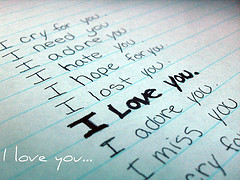 I cry for you.
I need you
I adore you
I hate you
I hope for you.
I lost you.
I Love you.
I adore you.
I miss you
cry for
I love you...